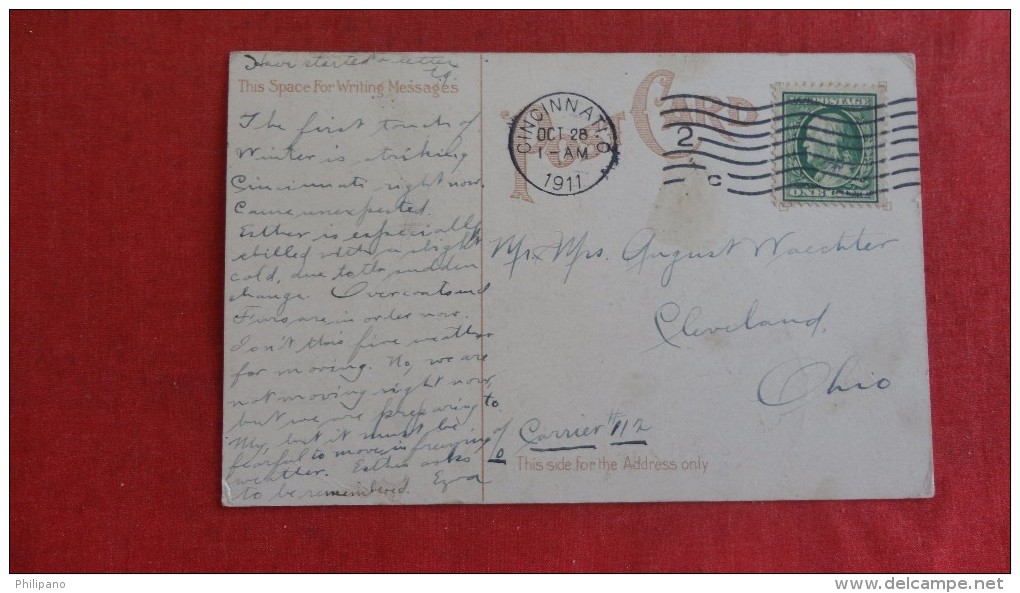 Have started a letter
Eg.
This Space For Writing Messages
The first touch of
Winter is striking
Cincinnati right now.
Came unexpected.
Esther is especially
chilled with a slight
cold, due to the sudden
change. Overcoats and
Furs are in order now.
Isn't this fine weather
for moving. No, we are
not moving right now,
but we are preparing to
My, but it must be
fearful to move in freezing
weather. Esther asks
to be remembered. Ezra
POST CARD
CINCINNATI, O.
OCT 28
1-AM
1911
2
C
U.S. POSTAGE
ONE
Mr. Mrs. August Waechter
Cleveland,
Ohio
c/o Carrier #112
This side for the Address only
Philipano
www.delcampe.net